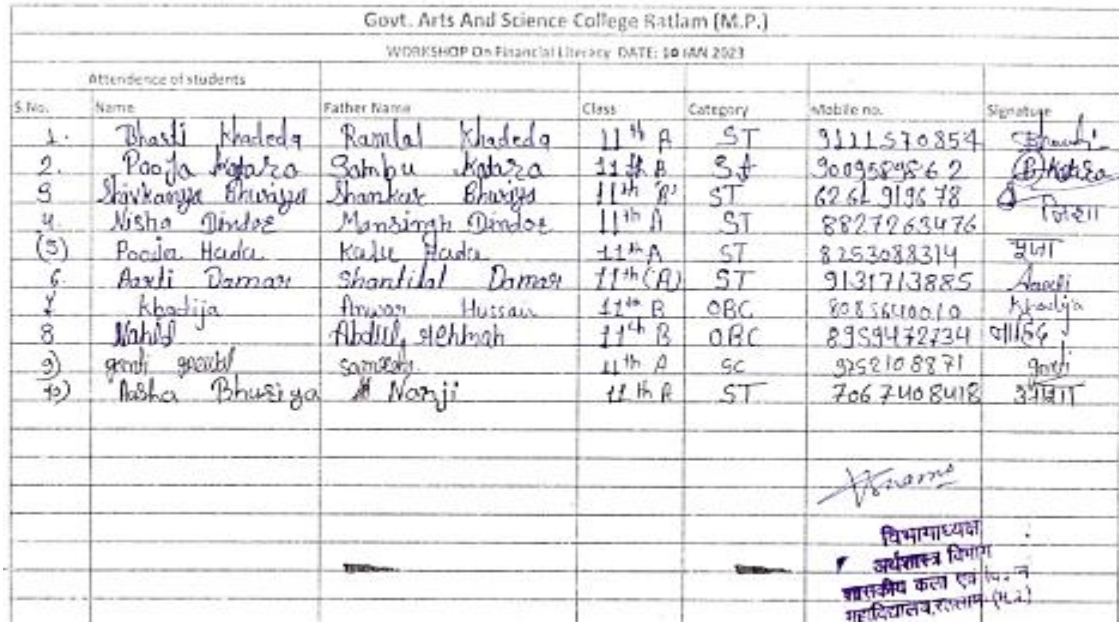 Govt. Arts And Science College Ratlam (M.P.)
WORKSHOP On Financial Literacy DATE: 10 JAN 2023
Attendence of students
S.No. Name Father Name Class Category Mobile no. Signature
1. Bharti Khadeda Ramlal Khadeda 11th A ST 9111570854 Bharti
2. Pooja Katara Sambu Katara 11th B St 9009589862 P. Katara
3 Shivkanya Bhuriya Shankar Bhuriya 11th 'A' ST 6261919678
4. Nisha Dindor Mansingh Dindor 11th A ST 8827263476 निशा
(5) Pooja Hada Kalu Hada 11th A ST 8253088314 पूजा
6. Aarti Damar Shantilal Damar 11th (A) ST 9131713885 Aarti
7 Khadija Anwar Hussain 11th B OBC Khadija
8 Nahid Abdul Rehman 11th B OBC 8959472734 नाहिद
9) 11th A SC 9252108871
10) Aasha Bhuriya Narji 11th A ST 7067408418 आशा
विभागाध्यक्ष
अर्थशास्त्र विभाग
शासकीय कला एवं
महाविद्यालय, रतलाम (म.प्र.)